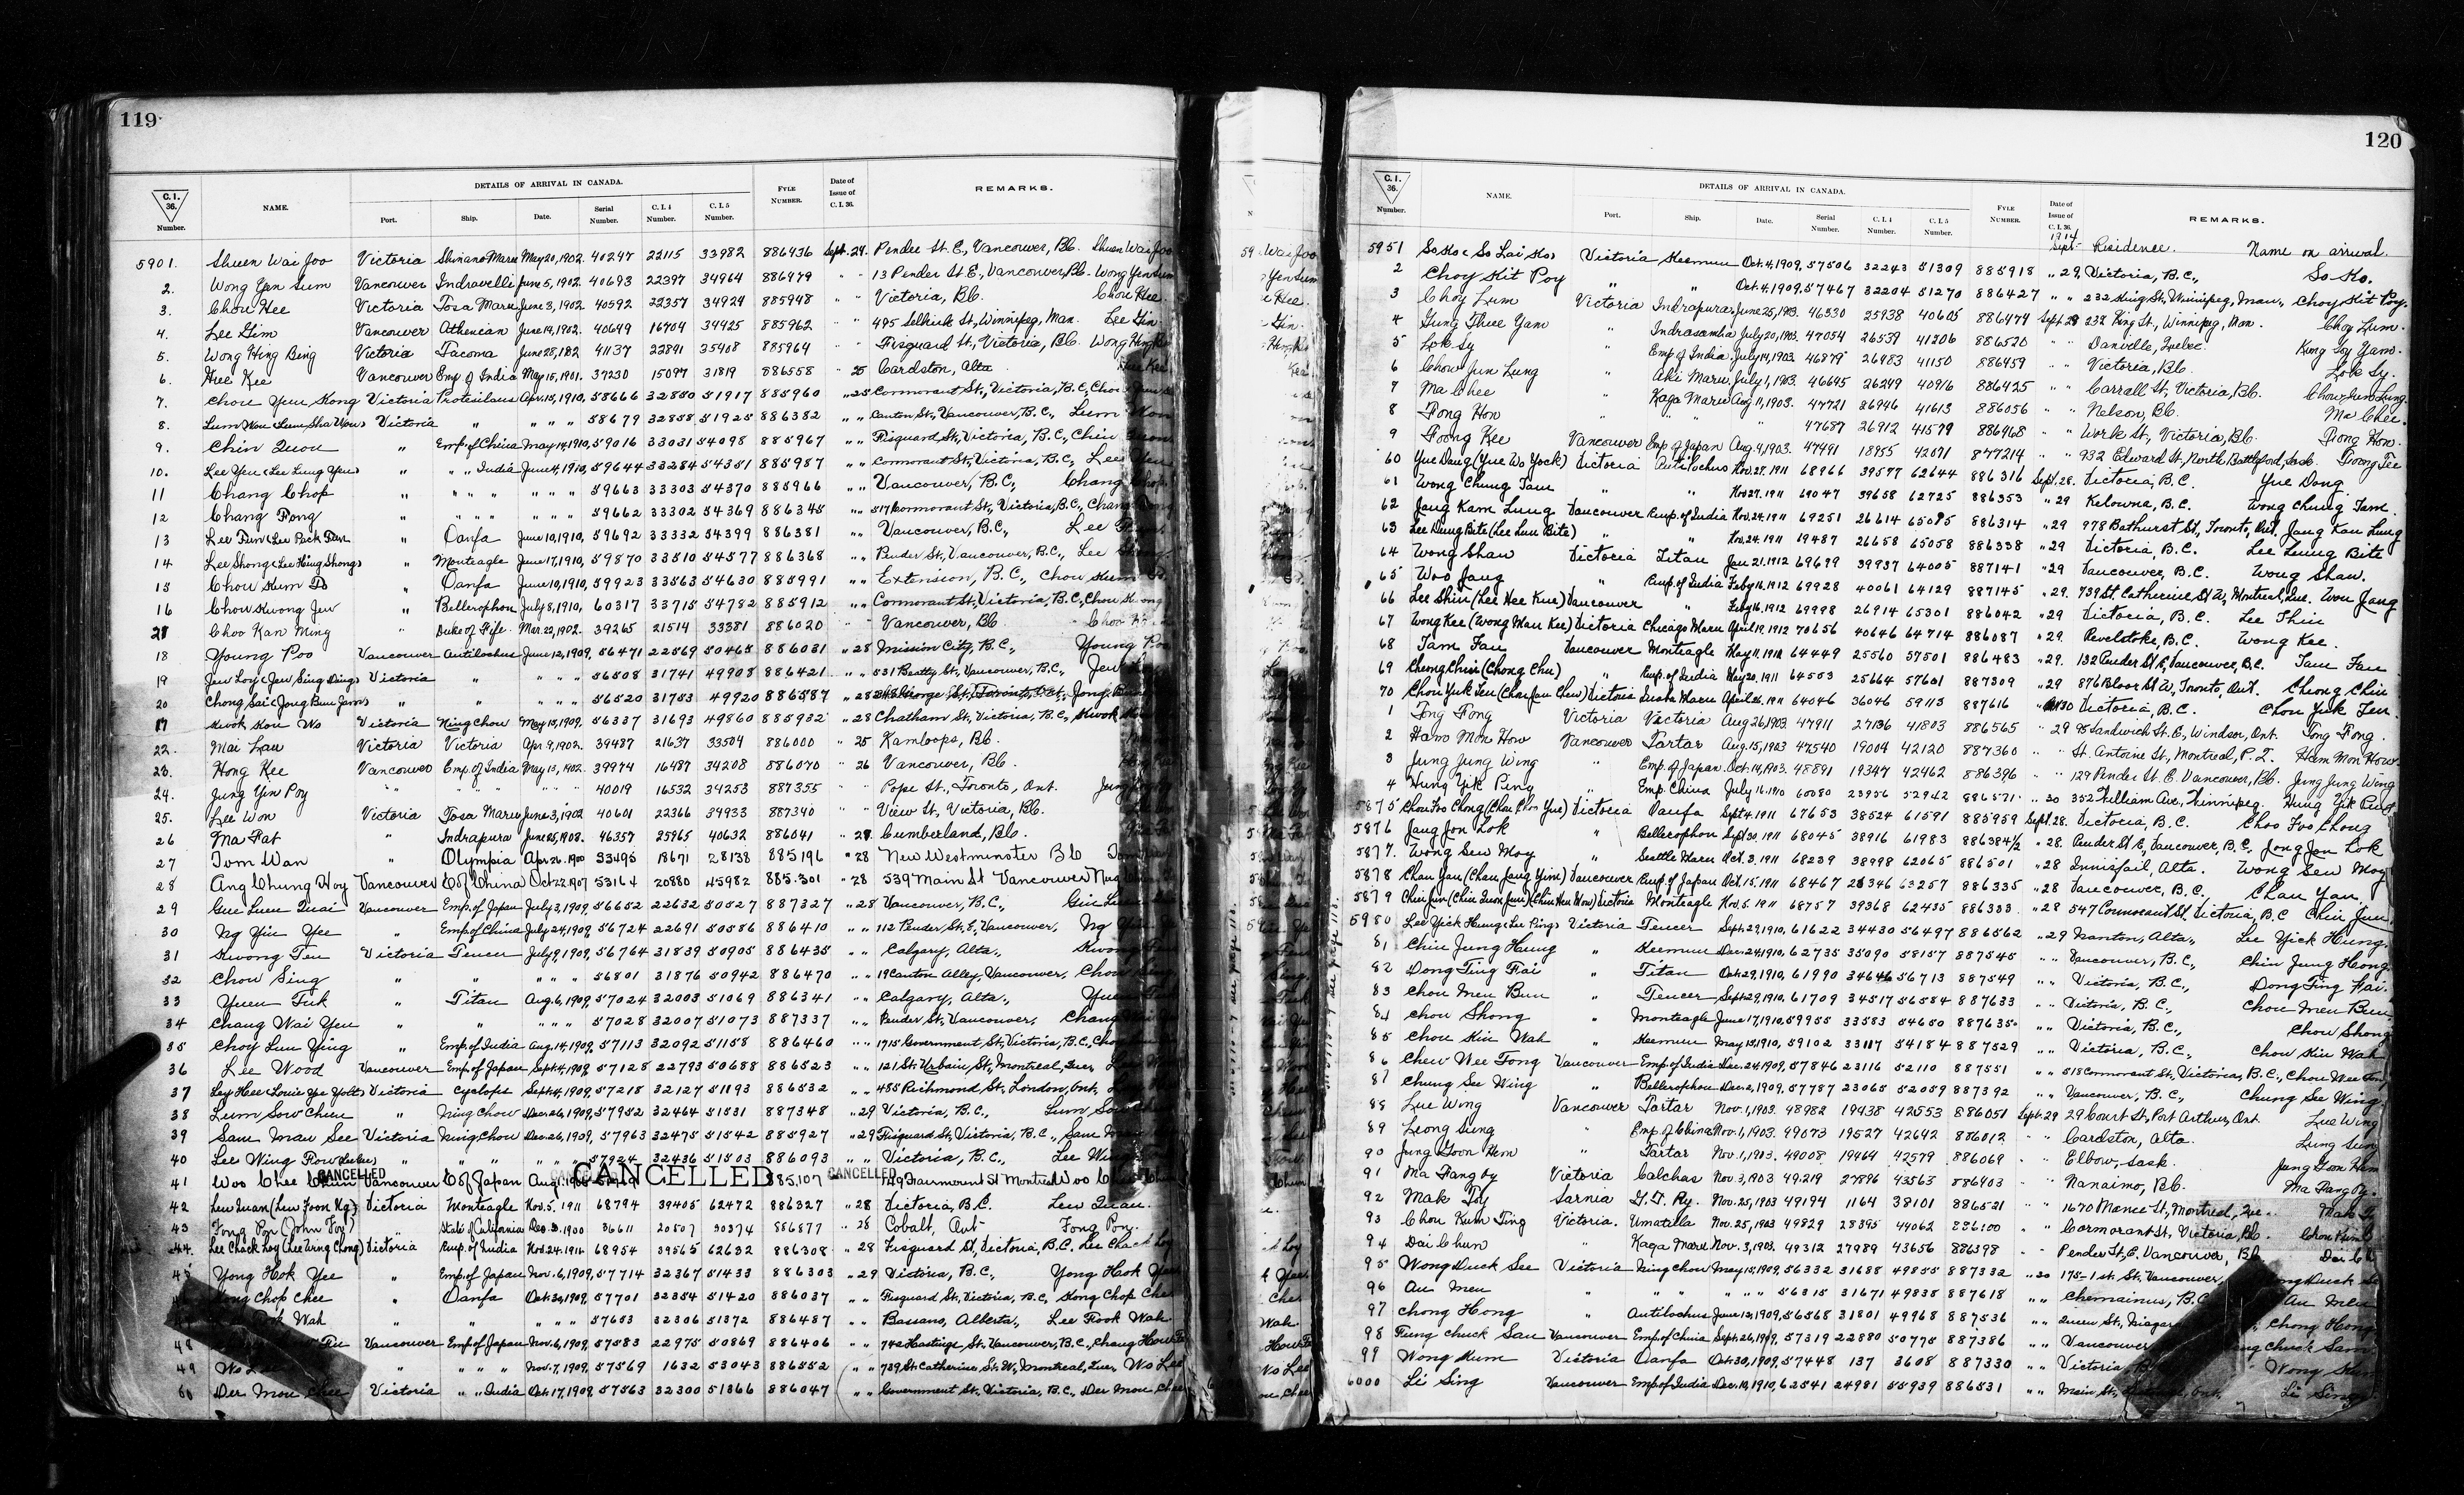 119
C.I. 36. Number. NAME. DETAILS OF ARRIVAL IN CANADA. Port. Ship. Date. Serial Number. C.I.4 Number. C.I.5 Number. FYLE NUMBER. Date of Issue of C.I.36. REMARKS.
5901. Shuen Wai Joo Victoria Shinano Maru May 20, 1902. 40297 22115 33982 886436 Sept. 24. Pender St. E., Vancouver, B.C. Shuen Wai Joo
2. Wong Yen Sum Vancouver Indravelli June 5, 1902. 40693 22397 34964 886979 " " 13 Pender St E, Vancouver, B.C. Wong Yen Sum
3. Chou Hee Victoria Tosa Maru June 3, 1902. 40592 22357 34924 885948 " " Victoria, B.C. Chou Hee
4. Lee Gim Vancouver Athenian June 14, 1902. 40649 16704 34425 885962 " " 495 Selkirk St., Winnipeg, Man. Lee Gin
5. Wong Hing Bing Victoria Tacoma June 28, 1902 41137 22891 35408 885964 " " Fisguard St., Victoria, B.C. Wong Hing
6. Huee Kee Vancouver Emp of India May 15, 1901. 37230 15097 31819 886558 " 25 Cardston, Alta
7. Chou Yuen Kong Victoria Protesilaus Apr. 15, 1910, 58666 32850 51917 885960 " 25 Cormorant St., Victoria, B.C.,
8. Victoria " " " " 58679 32858 51925 886382 " " Canton St., Vancouver, B.C., Lum
9. Chin Quou " Emp. of China May 14, 1910, 59016 33031 54098 885967 " " Fisguard St., Victoria, B.C., Chin
10. Lee Yen (Lee Lung Yen) " " " India June 4, 1910, 59644 33284 54351 885987 " " Cormorant St., Victoria, B.C., Lee
11 Chang Chop " " " " " " " 59663 33303 54370 885966 " " Vancouver, B.C., Chang Chop
12 Chang Fong " " " " " " " 59662 33302 54369 886345 " " 517 Cormorant St., Victoria, B.C., Chang
13 Lee Fun (Lee Pack Fun " Oanfa June 10, 1910, 59692 33332 54399 886381 " " Vancouver, B.C., Lee
14 Lee Shong (Lee Hing Shong) " Monteagle June 17, 1910, 59870 33510 54577 886368 " " Pender St., Vancouver, B.C., Lee
15 Chou Kum Do " Oanfa June 10, 1910, 59923 33563 54630 885991 " " Extension, B.C., Chou Kum
16 Chou Kwong Jew " Bellerophon July 8, 1910, 60317 33715 54782 885912 " " Cormorant St., Victoria, B.C., Chou Kwong
Choo Kan Ming " Duke of Fife. Mar. 22, 1902. 39265 21514 33381 886020 " " Vancouver, B.C.
18 Young Poo Vancouver Antilochus June 12, 1909, 56471 22569 50465 886031 " 28 Mission City, B.C., Young Poo
19 Victoria " " " " 56508 31741 49908 886421 " " 531 Beatty St., Vancouver, B.C.,
20 " " " " " 56520 31753 49920 886587 " 28
17 Kwok Kou Wo Victoria Ning Chou May 15, 1909, 56337 31693 49860 885932 " 28 Chatham St., Victoria, B.C., Kwok
22. Mai Lau Victoria Victoria Apr. 9, 1902. 39487 21637 33504 886000 " 25 Kamloops, B.C.
23. Hong Kee Vancouver Emp. of India May 13, 1902. 39974 16487 34208 886070 " 26 Vancouver, B.C.
24. Jung Yin Poy " " " " " 40019 16532 34253 887355 " " Pope St., Toronto, Ont.
25. Lee Won Victoria Tosa Maru June 3, 1902 40601 22366 34933 887340 " " View St., Victoria, B.C.
26 Ma Fat " Indrapura June 25, 1903. 46357 25965 40632 886041 " 27. Cumberland, B.C.
27 Tom Wan " Olympia Apr 26. 1900 33495 18671 28138 885196 " 28 New Westminster B.C.
28 Ang Chung Hoy Vancouver E of China Oct 22. 1907 53164 20880 45982 885.301 " 28 539 Main St Vancouver
29 Gue Luen Quai Vancouver Emp. of Japan July 3, 1909, 56652 22632 50527 887327 " 28 Vancouver, B.C.,
30 Ng Yin Yee " Emp of China July 24, 1909, 56724 22691 50586 886410 " " 112 Pender St. E, Vancouver, Ng
31 Kwong Fen Victoria Teucer July 9, 1909, 56764 31839 50905 886435 " " Calgary, Alta., Kwong
32 Chow Sing " " " " " 56801 31876 50942 886470 " " 19 Canton Alley, Vancouver, Chow
33 Yuen Fuk " Titan Aug. 6, 1909, 57024 32003 51069 886341 " " Calgary, Alta., Yuen
34 Chang Wai Yen " " " " " 57028 32007 51073 887337 " " Pender St., Vancouver, Chang
35 Choy Lun Ying " Emp. of India Aug. 14, 1909, 57113 32092 51158 886460 " " 1715 Government St., Victoria, B.C.,
36 Lee Wood Vancouver Emp. of Japan Sept. 4, 1909, 57128 22793 50688 886523 " " 121 St. Urbain St., Montreal, Que.,
37 Victoria Cyclops Sept. 4, 1909, 57218 32127 51193 886532 " " 485 Richmond St., London, Ont.,
38 Lum Sow Chuen " Ning Chow Dec. 26, 1909, 57952 32464 51531 887348 " 29 Victoria, B.C., Lum
39 Sam Mau See Victoria Ning Chou Dec. 26, 1909, 57963 32475 51542 885927 " 29 Fisguard St., Victoria, B.C., Sam
40 Lee Wing Fow " " " " " " 57924 32436 51503 886093 " " Victoria, B.C., Lee
CANCELLED CANCELLED CANCELLED
41 Woo Chee Chun Vancouver E of Japan Aug. 885.107 749 Dairmount St Montreal Woo
42 Victoria Monteagle Nov. 5. 1911 68794 39405 62472 886327 " 28 Victoria, B.C. Lew Quan.
43 Fong Pon (John Foy) State of California Dec. 3. 1900 36611 20507 30374 886877 " 28 Cobalt, Ont Fong Pon.
44. Lee Chack Loy (Lee Wing Chong) Victoria Emp. of India Nov. 24. 1911 68954 39565 62632 886308 " 28 Fisguard St, Victoria, B.C. Lee Chack Loy
45 Yong Hok Yee " Emp. of Japan Nov. 6, 1909, 57714 32367 51433 886303 " 29 Victoria, B.C., Yong Hok Yee
Kong Chop Chee " Oanfa Oct. 30, 1909, 57701 32354 51420 886037 " " Fisguard St., Victoria, B.C., Kong Chop Chee
Wah " " " " " 57653 32306 51372 886487 " " Bassano, Alberta, Lee Fook Wah
48 Vancouver Emp. of Japan Nov. 6, 1909, 57583 22975 50869 886406 " " 742 Hastings St., Vancouver, B.C.,
49 Wo Lee " " " " Nov. 7, 1909, 57569 1632 53043 886552 " " 739 St. Catherine St. W, Montreal, Que., Wo Lee
50 Der Mou Chee Victoria " " India Oct. 17, 1909, 57563 32300 51366 886047 " " Government St., Victoria, B.C., Der Mou Chee
120
C.I. 36. Number. NAME. DETAILS OF ARRIVAL IN CANADA. Port. Ship. Date. Serial Number. C.I.4 Number. C.I.5 Number. FYLE NUMBER. Date of Issue of C.I.36. REMARKS.
1914 Sept. Residence. Name on arrival.
5951 So Ko (So Lai Ko) Victoria Keemun Oct. 4, 1909, 57506 32243 51309 885918 " 29, Victoria, B.C., So Ko.
2 Choy Kit Poy " " Oct. 4, 1909, 57467 32204 51270 886427 " " 232 King St., Winnipeg, Man., Choy Kit Poy.
3 Choy Lum Victoria Indrapura June 25, 1903. 46330 25938 40605 886474 Sept. 28 232 King St., Winnipeg, Man. Choy Lum.
4 Gung Thue Yam " Indrasamha July 20, 1903. 47054 26539 41206 886520 " " Danville, Quebec. Kung Soy Yam.
5 Lok Sy " Emp of India. July 14, 1903. 46879 26483 41150 886459 " " Victoria, B.C. Lok Sy.
6 Chow Jun Lung " Aki Maru, July 1, 1903. 46645 26249 40916 886425 " " Carrall St., Victoria, B.C. Chow Jun Lung.
7 Ma Chee " Kaga Maru Aug 11, 1903. 47721 26946 41613 886056 " " Nelson, B.C. Ma Chee.
8 Fong Hon " " " 47687 26912 41579 886968 " " Work St., Victoria, B.C. Fong Hon.
9 Foong Kee Vancouver Emp of Japan Aug. 4, 1903. 47491 18955 42071 877214 " " 932 Edward St., North Battleford, Sask. Foong Tee
60 Yue Dang (Yue Wo Yock) Victoria Antilochus Nov. 27. 1911 68966 39577 62644 886316 Sept. 28. Victoria, B.C. Yue Dong.
61 Wong Chung Tam " " Nov 27. 1911 69047 39658 62725 886353 " 29 Kelowna, B.C. Wong Chung Tam.
62 Jang Kam Lung Vancouver Emp. of India Nov. 24. 1911 69251 26614 65015 886314 " 29 978 Bathurst St, Toronto, Ont. Jang Kan Lung
63 Lee Dung Bite (Lee Lun Bite) " " Nov. 24. 1911 19487 26658 65058 886338 " 29 Victoria, B.C. Lee Lung Bite
64 Wong Shaw Victoria Titan Jan 21. 1912 69679 39937 64005 887141 " 29 Vancouver, B.C. Wong Shaw.
65 Woo Jang " Emp. of India Feby 16. 1912 69928 40061 64129 887145 " 29. 739 St. Catherine St W, Montreal, Que. Wou Jang
66 Lee Shin (Lee Hee Kue) Vancouver " Feby 16. 1912 69998 26914 65301 886042 " 29 Victoria, B.C. Lee Thin
67 Wong Kee (Wong Man Kee) Victoria Chicago Maru April 19. 1912 70656 40646 64714 886087 " 29. Revelstoke, B.C. Wong Kee.
68 Tam Fan Vancouver Monteagle May 11. 1911 64449 25560 57501 886483 " 29. 132 Pender St E, Vancouver, B.C. Tam Fan
69 Cheong Chin (Chong Chu) " Emp. of India May 20. 1911 64553 25664 57601 887309 " 29 876 Bloor St W, Toronto, Ont. Cheong Chin
70 Chou Yuk Fen Victoria April 26. 1911 64046 36046 59113 887616 " 30 Victoria, B.C. Chou Yuk Fen.
1 Tong Fong Victoria Victoria Aug 26, 1903. 47911 27136 41803 886565 " 29 95 Sandwich St. E., Windsor, Ont. Tong Fong.
2 Ham Mon How Vancouver Tartar Aug. 15, 1903 47540 19004 42120 887360 " " St. Antoine St., Montreal, P.Q. Ham Mon How.
3 Jung Jung Wing " Emp. of Japan Oct. 14, 1903. 48891 19347 42462 886396 " " 129 Pender St. E. Vancouver, B.C. Jung Jung Wing
4 Hung Yik Ping " Emp. China July 16. 1910 60080 23956 52942 886571 " 30 352 William Ave., Winnipeg. Hung Yik Ping
5875 Choo Foo Chong (Chou Choo Yue) Victoria Oanfa Sept 4. 1911 67653 38524 61591 885959 Sept. 28. Victoria, B.C. Choo Foo Chong
5876 Jang Jon Lok " Bellerophon Sept 30. 1911 68045 38916 61983 886384 1/2 " 28. Pender St E, Vancouver, B.C. Jong Jon Lok
5877. Wong Sew Moy " Seattle Maru Oct. 3. 1911 68239 38998 62065 886501 " 28 Innisfail, Alta. Wong Sew Moy
5878 Chan Yan (Chan Jang Yim) Vancouver Emp of Japan Oct. 15. 1911 68467 26346 63257 886335 " 28 Vancouver, B.C. Chan Yan.
5879 Chin Jun (Chin Quon Jun) (Chin Hen Wow) Victoria Monteagle Nov. 5. 1911 68757 39368 62435 886333 " 28 547 Cormorant St Victoria, B.C. Chin Jun
5980 Lee Yick Hung (Lee Ping) Victoria Teucer Sept. 29, 1910, 61622 34430 56497 886562 " 29 Nanton, Alta., Lee Yick Hung.
81 Chin Jung Hung " Keemun Dec. 24, 1910, 62735 35090 58157 887545 " " Vancouver, B.C., Chin Jung Hong
82 Dong Ting Fai " Titan Oct. 29, 1910, 61990 34646 56713 887549 " " Victoria, B.C., Dong Ting Fai.
83 Chou Men Bun " Teucer Sept. 29, 1910, 61709 34517 56584 887633 " " Victoria, B.C., Chou Men Bun
84 Chou Shong " Monteagle June 17, 1910, 59955 33583 54650 887635 " " Victoria, B.C., Chou Shong
85 Chou Kin Wah " Keemun May 15, 1910, 59102 33117 54184 887529 " " Victoria, B.C., Chou Kin Wah
86 Chew Wee Tong Vancouver Emp. of India Dec. 24, 1909, 57846 23116 52110 887551 " " 518 Cormorant St., Victoria, B.C., Chou Wee Tong
87 Chung See Wing " Bellerophon Dec. 2, 1909, 57787 23065 52059 887392 " " Vancouver, B.C., Chung See Wing
88 Lue Wing Vancouver Tartar Nov. 1, 1903. 48982 19438 42553 886051 Sept. 29 29 Court St., Port Arthur, Ont. Lue Wing
89 Leong Sung " Emp. of China Nov. 1, 1903. 49073 19527 42642 886012 " " Cardston, Alta. Lung Sun
90 Jung Goon Hem " Tartar Nov. 1, 1903. 49008 19464 42579 886069 " " Elbow, Sask. Jung Goon Hem
91 Ma Fang Oy Victoria Calchas Nov. 3, 1903 49219 27896 43563 886403 " " Nanaimo, B.C. Ma Fang Oy.
92 Mak Toy Sarnia G.T. Ry. Nov. 25, 1903 49194 1164 38101 886521 " " 1670 Mance St., Montreal, Que. Mak
93 Chou Kum Ting Victoria. Umatilla Nov. 25, 1903 49829 28395 44062 886100 " " Cormorant St., Victoria, B.C. Chou Kum
94 Dai Chun " Kaga Maru Nov. 3, 1903. 49312 27989 43656 886398 " " Pender St. E. Vancouver, B.C.
95 Wong Duck See Victoria Ning Chow May 15, 1909, 56332 31688 49855 887332 " 30 175-1st. St., Vancouver,
96 Au Men " " " " " 56315 31671 49838 887618 " " Chemainus, B.C. Au Men
97 Chong Hong " Antilochus June 12, 1909, 56568 31801 49968 887536 " " Queen St., Niagara Chong Hong
98 Fung Chuck Sau Vancouver Emp. of China Sept. 26, 1909, 57319 22880 50775 887386 " " Vancouver
99 Wong Kum Victoria Oanfa Oct. 30, 1909, 57448 137 3608 887330 " " Victoria, Wong
6000 Li Sing Vancouver Emp. of India Dec. 10, 1910, 62541 24981 55939 886531 " " Main St., Li Sing